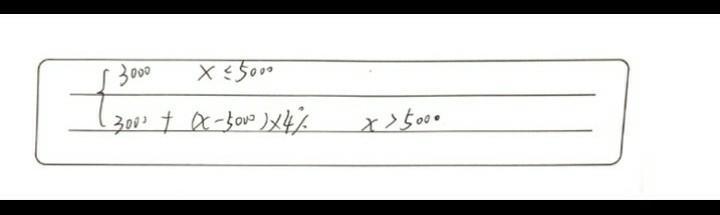 { 3000 x ≤ 5000
3000 + (x-5000)×4% x > 5000